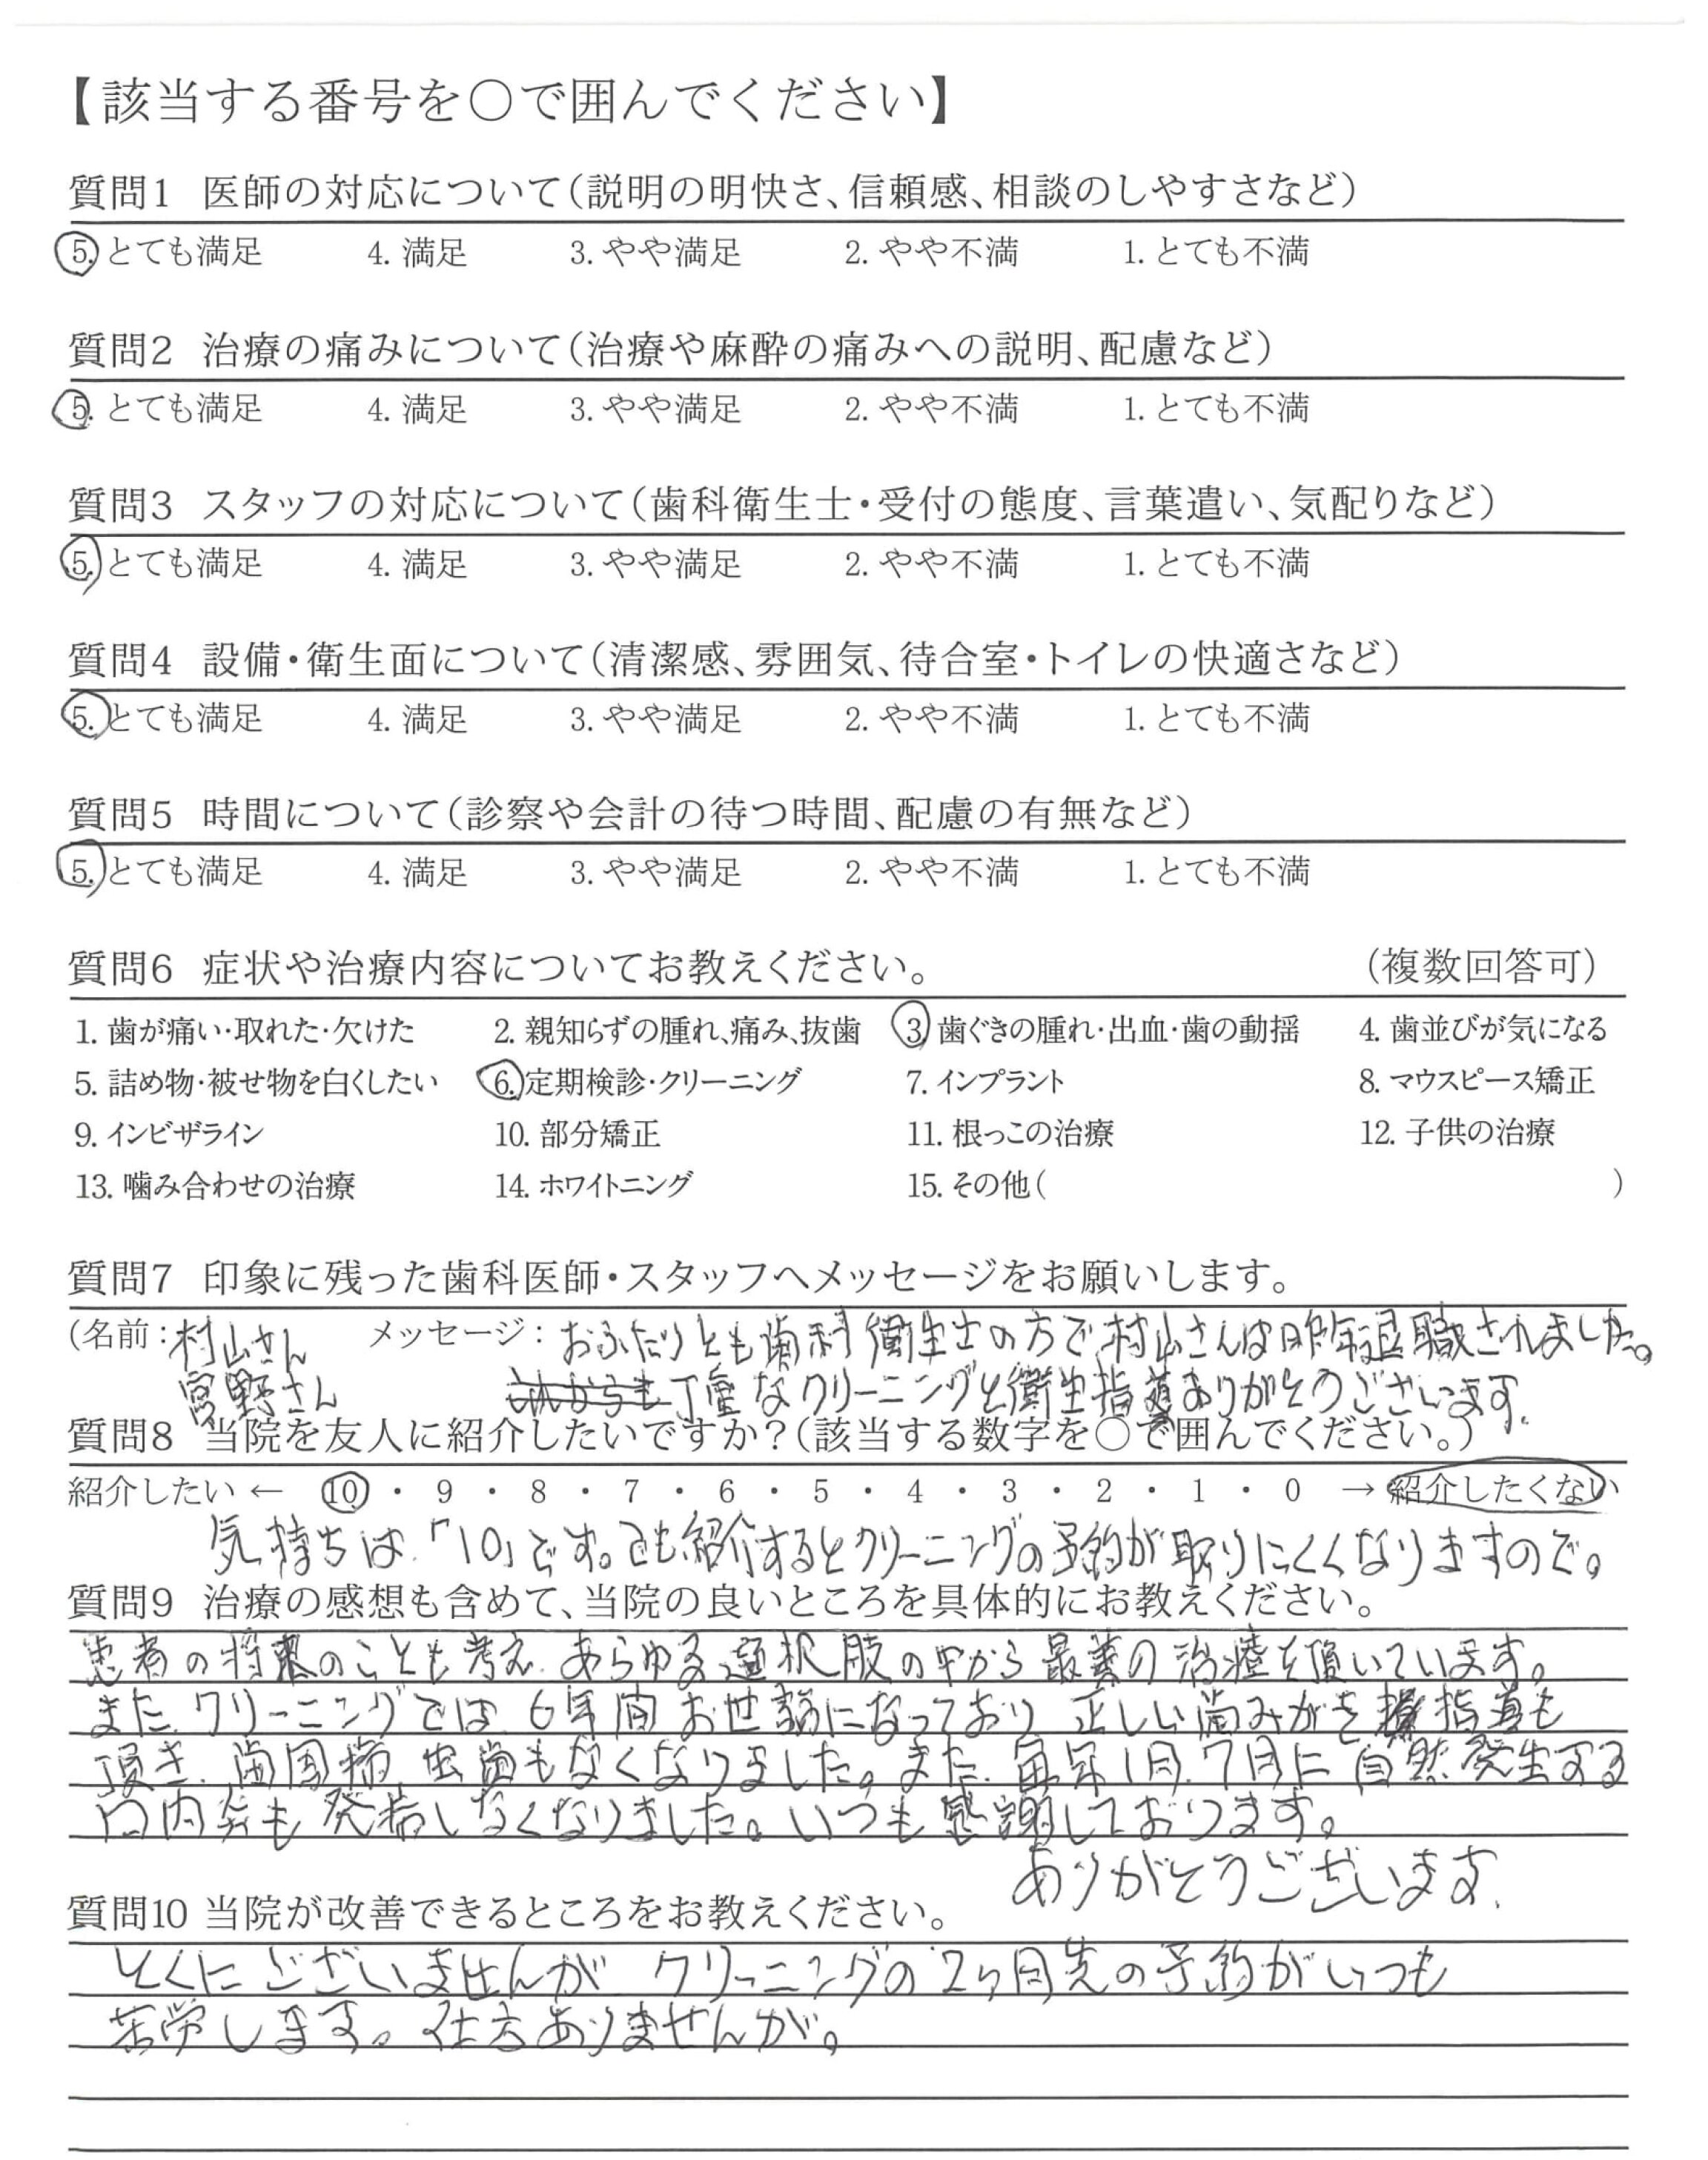 【該当する番号を〇で囲んでください】
質問1 医師の対応について(説明の明快さ、信頼感、相談のしやすさなど)
5. とても満足 4. 満足 3. やや満足 2. やや不満 1. とても不満
質問2 治療の痛みについて(治療や麻酔の痛みへの説明、配慮など)
5. とても満足 4. 満足 3. やや満足 2. やや不満 1. とても不満
質問3 スタッフの対応について(歯科衛生士・受付の態度、言葉遣い、気配りなど)
5. とても満足 4. 満足 3. やや満足 2. やや不満 1. とても不満
質問4 設備・衛生面について(清潔感、雰囲気、待合室・トイレの快適さなど)
5. とても満足 4. 満足 3. やや満足 2. やや不満 1. とても不満
質問5 時間について(診察や会計の待つ時間、配慮の有無など)
5. とても満足 4. 満足 3. やや満足 2. やや不満 1. とても不満
質問6 症状や治療内容についてお教えください。 (複数回答可)
1. 歯が痛い・取れた・欠けた 2. 親知らずの腫れ、痛み、抜歯 3. 歯ぐきの腫れ・出血・歯の動揺 4. 歯並びが気になる
5. 詰め物・被せ物を白くしたい 6. 定期検診・クリーニング 7. インプラント 8. マウスピース矯正
9. インビザライン 10. 部分矯正 11. 根っこの治療 12. 子供の治療
13. 噛み合わせの治療 14. ホワイトニング 15. その他( )
質問7 印象に残った歯科医師・スタッフへメッセージをお願いします。
(名前：村山さん メッセージ：おふたりとも歯科衛生士の方で村山さんは昨年退職されました。
宮野さん 丁重なクリーニングと衛生指導ありがとうございます。
質問8 当院を友人に紹介したいですか？(該当する数字を〇で囲んでください。)
紹介したい ← 10 ・ 9 ・ 8 ・ 7 ・ 6 ・ 5 ・ 4 ・ 3 ・ 2 ・ 1 ・ 0 → 紹介したくない
気持ちは「10」です。でも紹介するとクリーニングの予約が取りにくくなりますので。
質問9 治療の感想も含めて、当院の良いところを具体的にお教えください。
患者の将来のことも考え、あらゆる選択肢の中から最善の治療を頂いています。
また、クリーニングでは、6年間お世話になっており、正しい歯みがき指導も
頂き、歯周病、虫歯もなくなりました。また、毎年1月、7月に自然発生する
口内炎も発病しなくなりました。いつも感謝しております。
ありがとうございます。
質問10 当院が改善できるところをお教えください。
とくにございませんが クリーニングの2ヶ月先の予約がいつも
苦労します。仕方ありませんが。